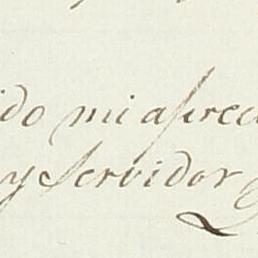 ido mi aprec
y servidor